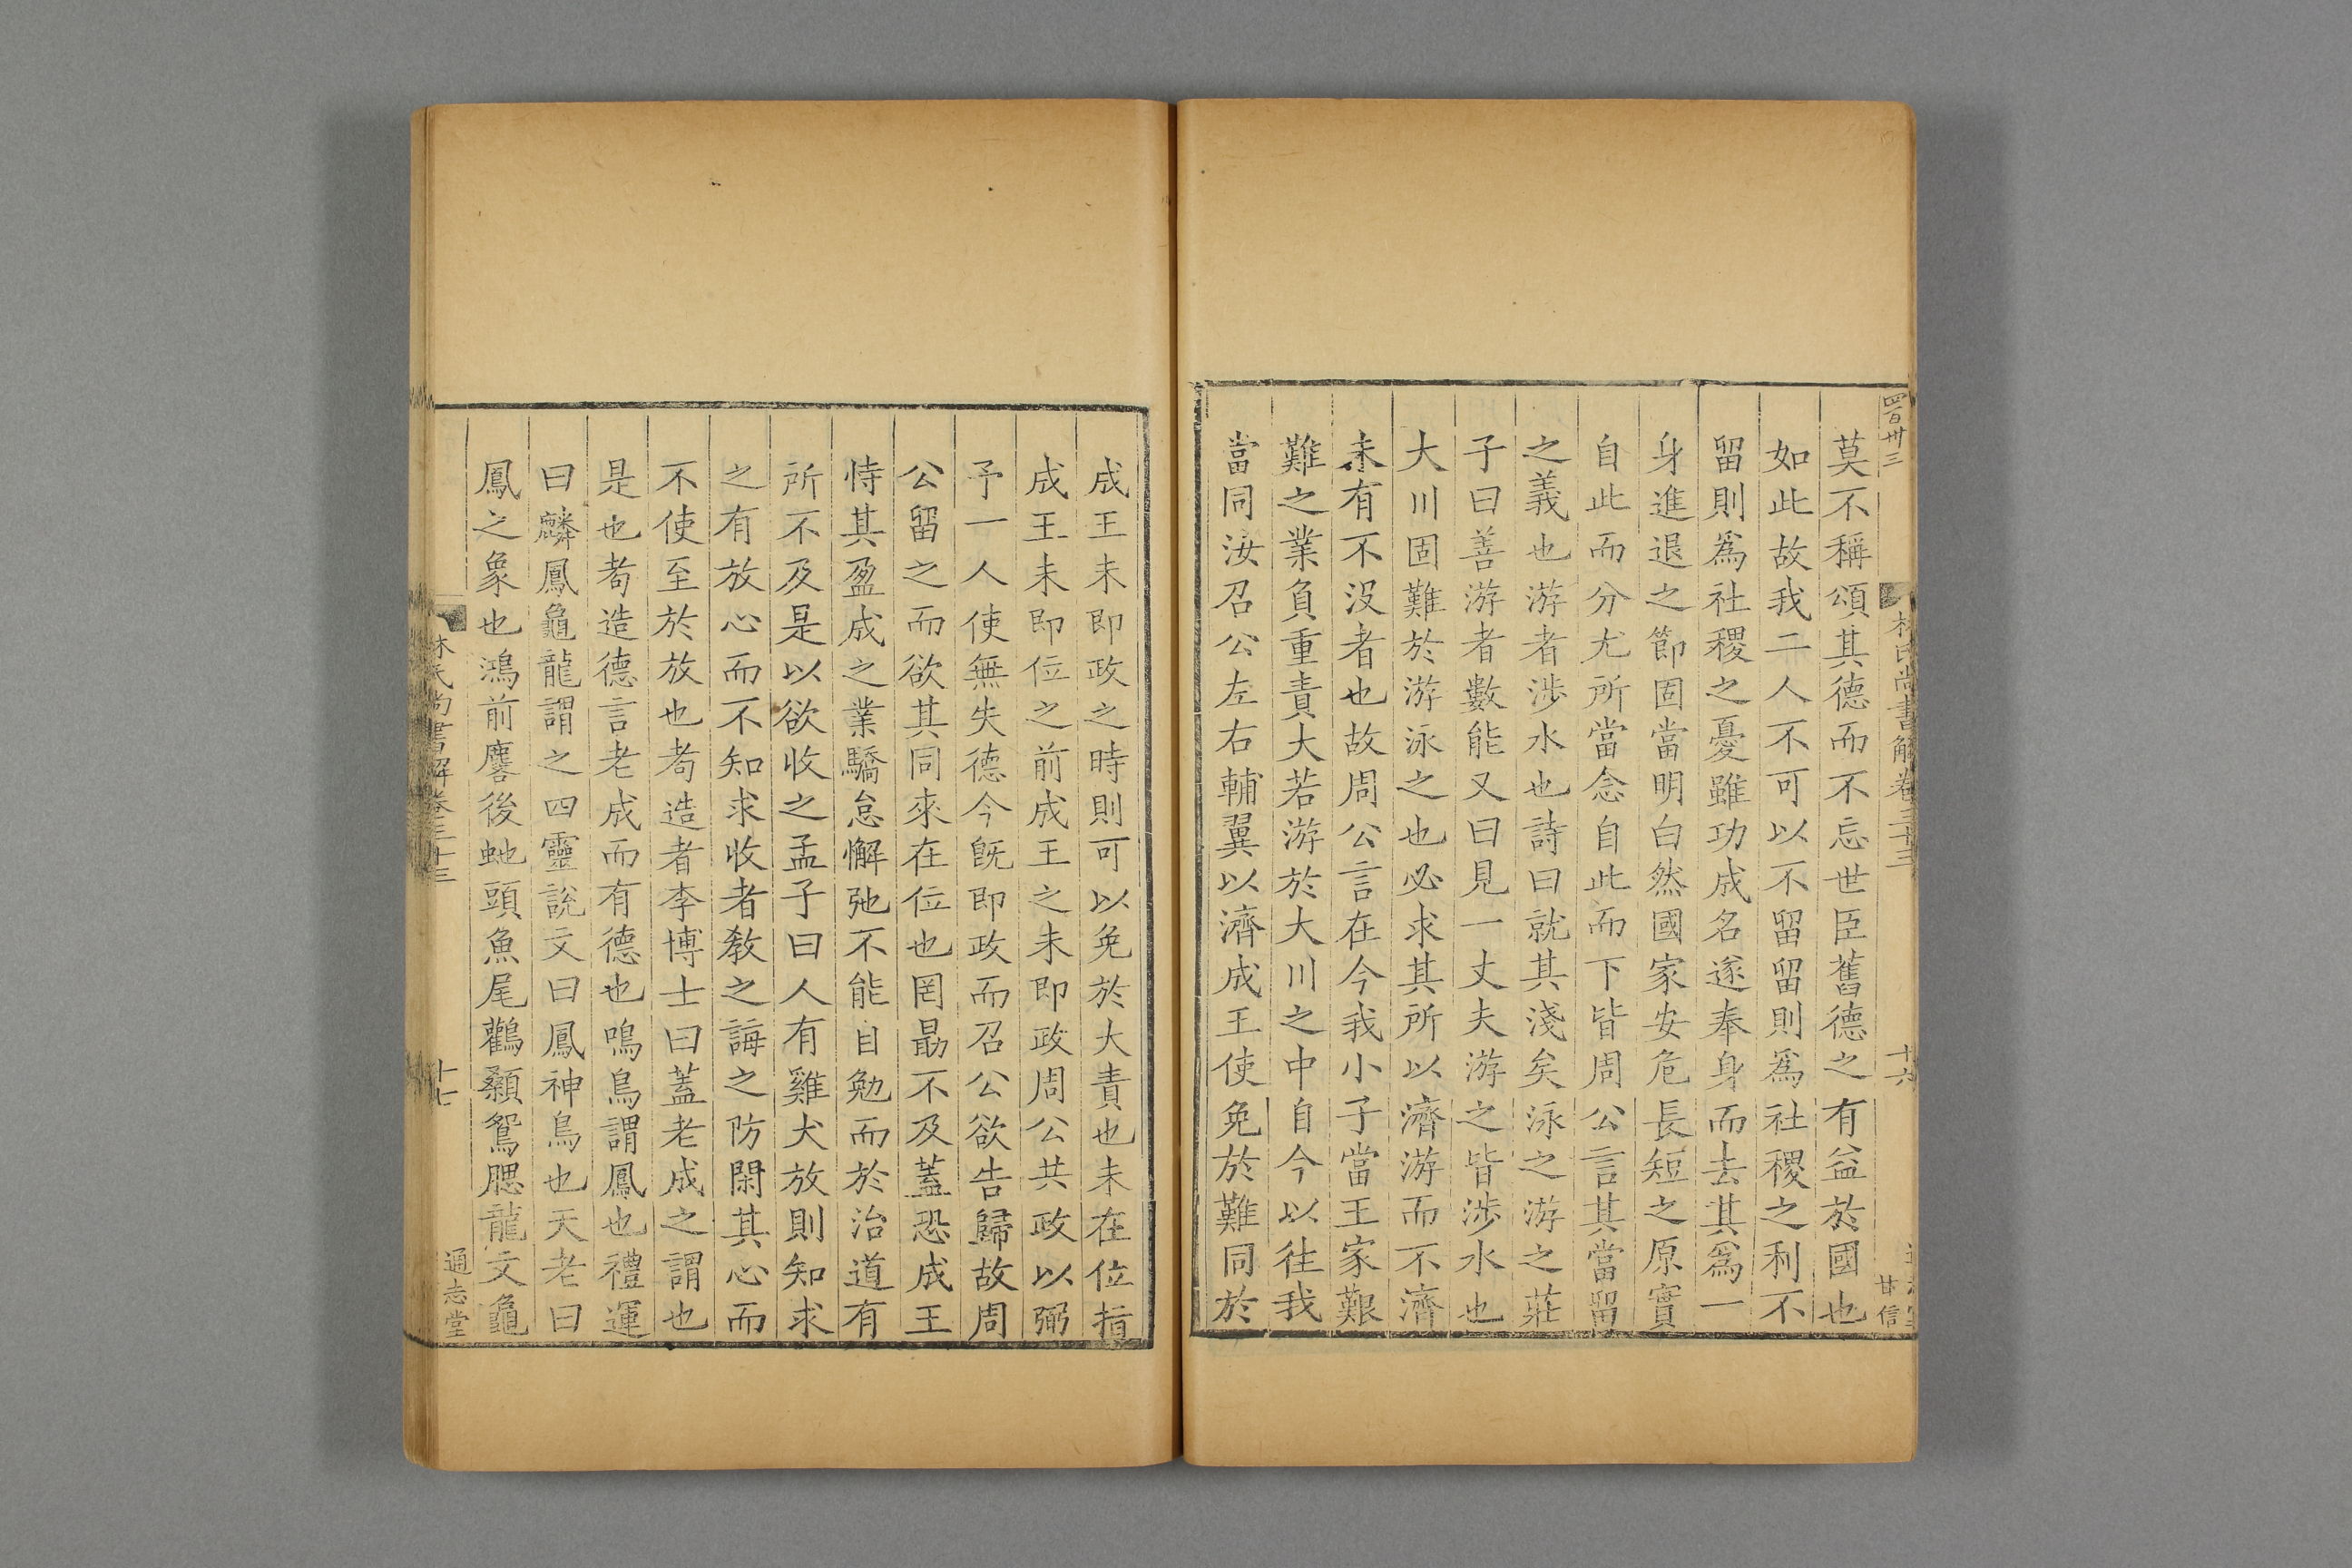 莫不稱頌其德而不忘世臣舊德之有益於國也
如此故我二人不可以不留留則爲社稷之利不
留則爲社稷之憂雖功成名遂奉身而去其爲一
身進退之節固當明白然國家安危長短之原實
自此而分尤所當念自此而下皆周公言其當留
之義也游者涉水也詩曰就其淺矣泳之游之莊
子曰善游者數能又曰見一丈夫游之皆涉水也
大川固難於游泳之也必求其所以濟游而不濟
未有不没者也故周公言在今我小子當王家艱
難之業負重責大若游於大川之中自今以往我
當同汝召公左右輔翼以濟成王使免於難同於
四百卅三
林氏尚書解卷三十三
十六
甘信
成王未即政之時則可以免於大責也未在位指
成王未即位之前成王之未即政周公共政以弼
予一人使無失德今旣即政而召公欲告歸故周
公留之而欲其同來在位也罔勗不及蓋恐成王
恃其盈成之業驕怠懈弛不能自勉而於治道有
所不及是以欲收之孟子曰人有雞犬放則知求
之有放心而不知求收者敎之誨之防閑其心而
不使至於放也耇造者李博士曰蓋老成之謂也
是也耇造德言老成而有德也鳴鳥謂鳳也禮運
曰麟鳳龜龍謂之四靈說文曰鳳神鳥也天老曰
鳳之象也鴻前麐後虵頭魚尾鸛顙鴛腮龍文龜
林氏尚書解卷三十三
十七
通志堂